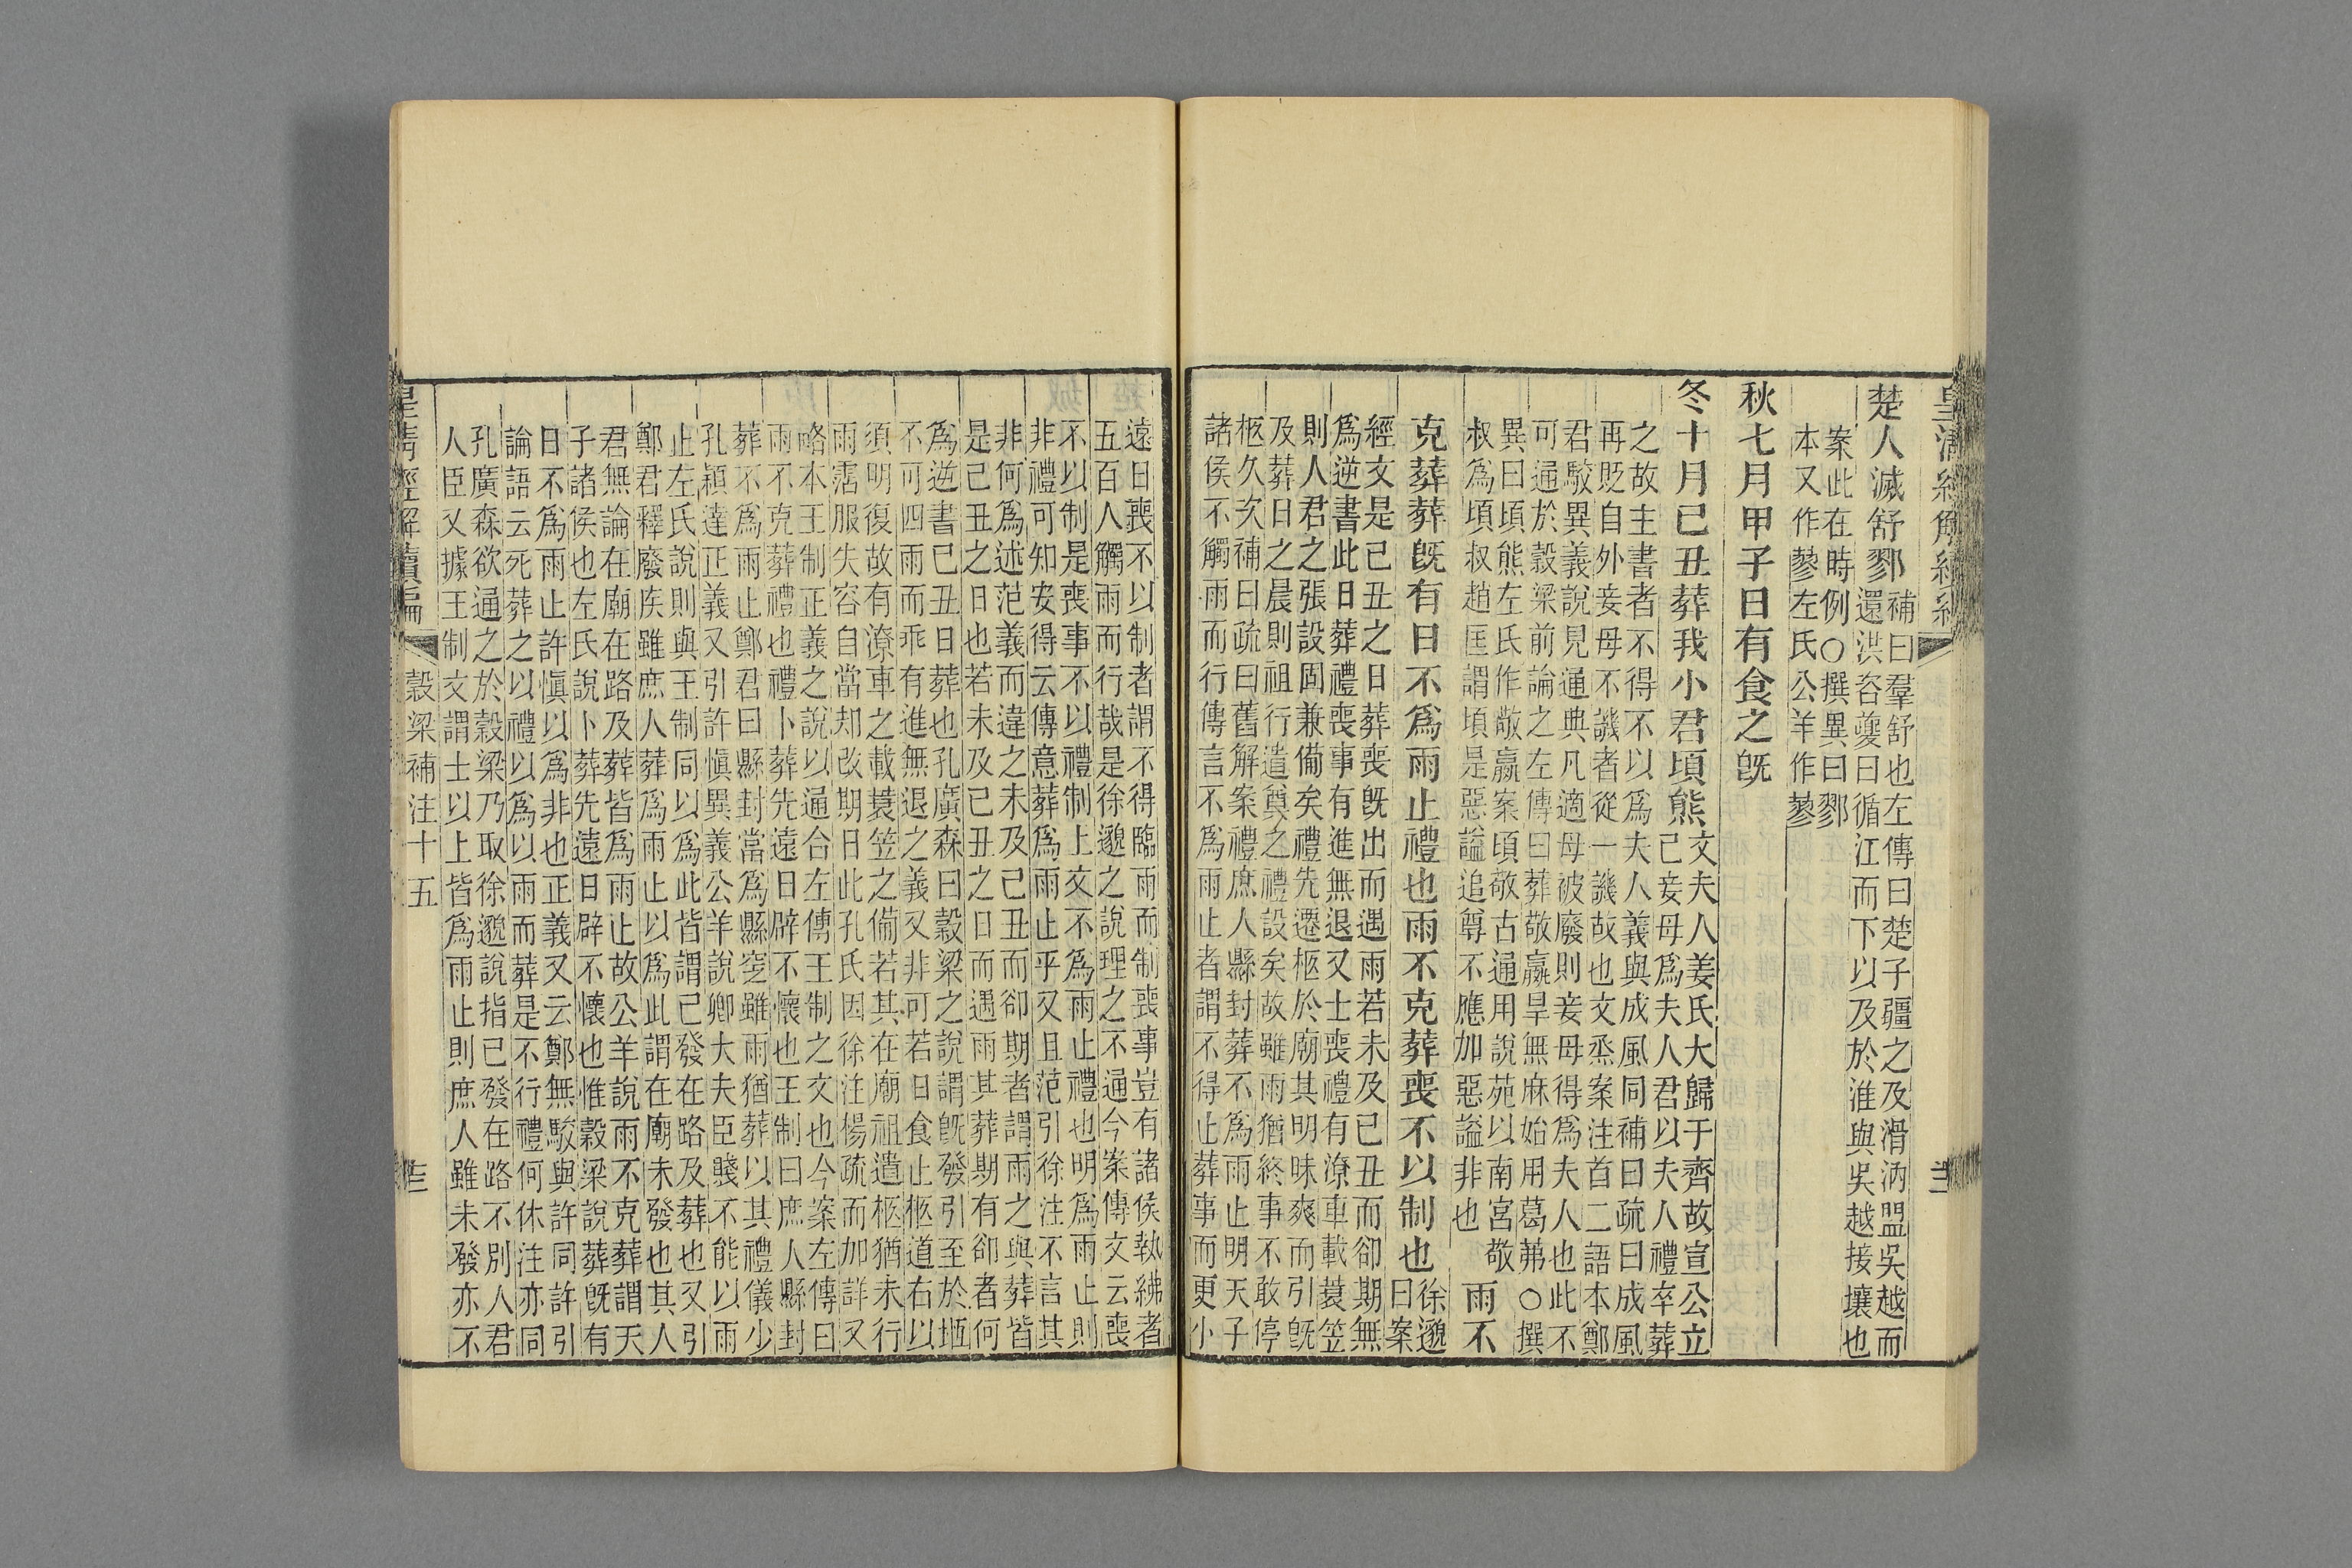 楚人滅舒鄝
補曰羣舒也左傳曰楚子疆之及滑汭盟吳越而
還洪咨夔曰循江而下以及於淮與吳越接壤也
案此在時例○撰異曰鄝
本又作蓼左氏公羊作蓼
秋七月甲子日有食之旣
冬十月己丑葬我小君頃熊
文夫人姜氏大歸于齊故宣公立
己妾母爲夫人君以夫人禮卒葬
之故主書者不得不以爲夫人義與成風同補曰疏曰成風
再貶自外妾母不譏者從一譏故也文烝案注首二語本鄭
君駮異義說見通典凡適母被廢則妾母得爲夫人也此不
可通於穀梁前論之左傳曰葬敬嬴旱無麻始用葛茀○撰
異曰頃熊左氏作敬嬴案頃敬古通用說苑以南宮敬
叔爲頃叔趙匡謂頃是惡謚追尊不應加惡謚非也
雨不
克葬葬旣有日不爲雨止禮也雨不克葬喪不以制也
徐邈
曰案
經文是己丑之日葬喪旣出而遇雨若未及己丑而卻期無
爲逆書此日葬禮喪事有進無退又士喪禮有潦車載蓑笠
則人君之張設固兼備矣禮先遷柩於廟其明昧爽而引旣
及葬日之晨則祖行遣奠之禮設矣故雖雨猶終事不敢停
柩久次補曰疏曰舊解案禮庶人縣封葬不爲雨止明天子
諸侯不觸雨而行傳言不爲雨止者謂不得止葬事而更小
皇清經解續編
遠日喪不以制者謂不得臨雨而制喪事豈有諸侯執紼者
五百人觸雨而行哉是徐邈之說理之不通今案傳文云喪
不以制是喪事不以禮制上文不爲雨止禮也明爲雨止則
非禮可知安得云傳意葬爲雨止乎又且范引徐注不言其
非何爲述范義而違之未及己丑而卻期者謂雨之與葬皆
是己丑之日也若未及己丑之日而遇雨其葬期有卻者何
爲逆書己丑日葬也孔廣森曰穀梁之說謂旣發引至於堩
不可四雨而乖有進無退之義又非可若日食止柩道右以
須明復故有潦車之載蓑笠之備若其在廟祖遣柩猶未行
雨霑服失容自當却改期日此孔氏因徐注楊疏而加詳又
略本王制正義之說以通合左傳王制之文也今案左傳曰
雨不克葬禮也禮卜葬先遠日辟不懷也王制曰庶人縣封
葬不爲雨止鄭君曰縣封當爲縣窆雖雨猶葬以其禮儀少
孔穎達正義又引許愼異義公羊說卿大夫臣賤不能以雨
止左氏說則與王制同以爲此皆謂己發在路及葬也又引
鄭君釋廢疾雖庶人葬爲雨止以爲此謂在廟未發也其人
君無論在廟在路及葬皆爲雨止故公羊說雨不克葬謂天
子諸侯也左氏說卜葬先遠日辟不懷也惟穀梁說葬旣有
日不爲雨止許愼以爲非也正義又云鄭無駮與許同許引
論語云死葬之以禮以爲以雨而葬是不行禮何休注亦同
孔廣森欲通之於穀梁乃取徐邈說指已發在路不別人君
人臣又據王制文謂士以上皆爲雨止則庶人雖未發亦不
皇清經解續編
穀梁補注十五